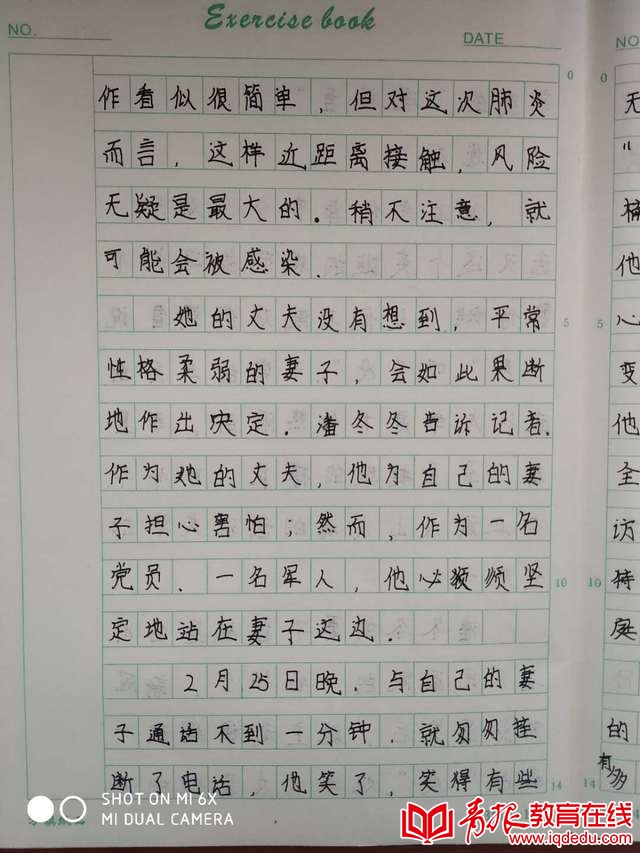 Exercise book
NO.
DATE
作看似很简单，但对这次肺炎
而言，这样近距离接触，风险
无疑是最大的。稍不注意，就
可能会被感染．
她的丈夫没有想到，平常
性格柔弱的妻子，会如此果断
地作出决定．潘冬冬告诉记者．
作为她的丈夫，他为自己的妻
子担心害怕；然而，作为一名
党员、一名军人，他必须须坚
定地站在妻子这边．
2月25日晚．与自己的妻
子通话不到一分钟．就匆匆挂
断了电话，他笑了，笑得有些
0
5
10
14
NO
无
"
他
心
变
他
圣
访
持
的
有多
0
5
10
14
SHOT ON MI 6X
MI DUAL CAMERA
青报教育在线
www.iqdedu.com